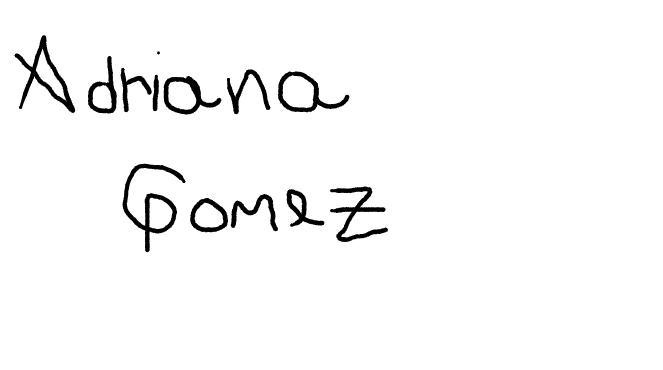 Adriana
Gomez